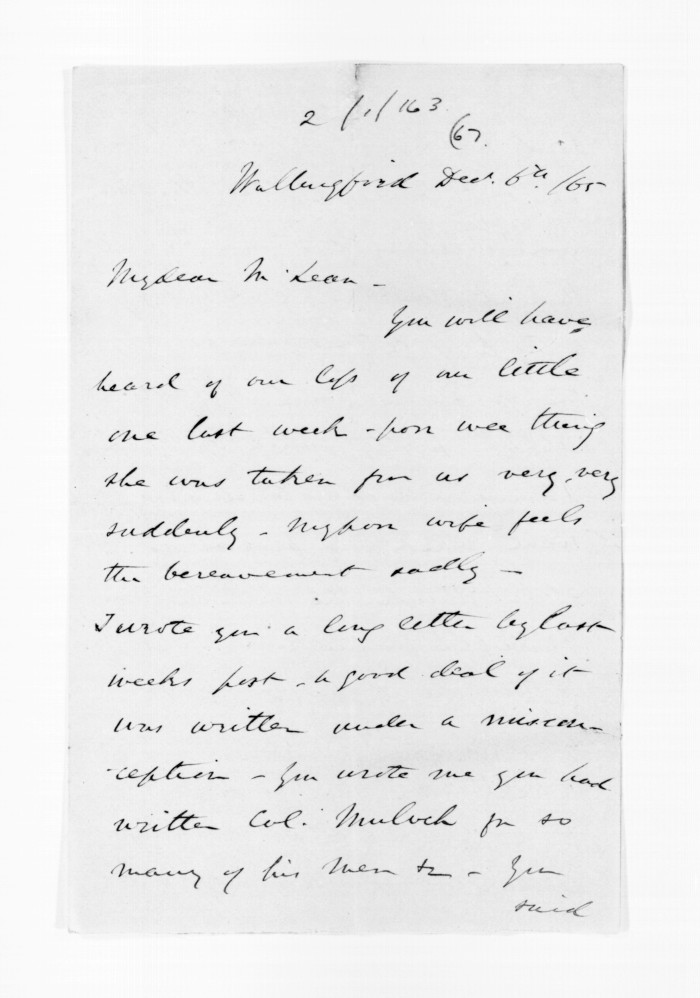 2 /1/163
(67.
Wallingford Decr. 6th /65
My dear McLean -
You will have
heard of our loss of our little
one last week - poor wee thing
she was taken from us very, very
suddenly - My poor wife feels
the bereavement sadly -
I wrote you a long letter by last
weeks post - a good deal of it
was written under a miscon-
-ception - You wrote me you had
written Col. Mulock for so
many of his men &c - You
said